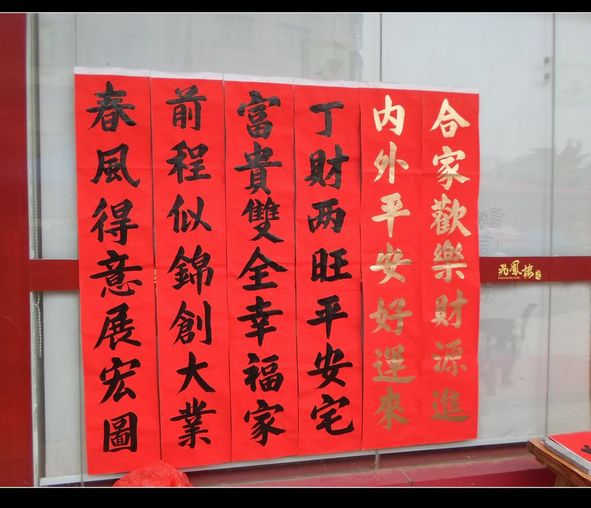 合家歡樂財源進
内外平安好運來
丁財两旺平安宅
富貴雙全幸福家
前程似錦創大業
春風得意展宏圖